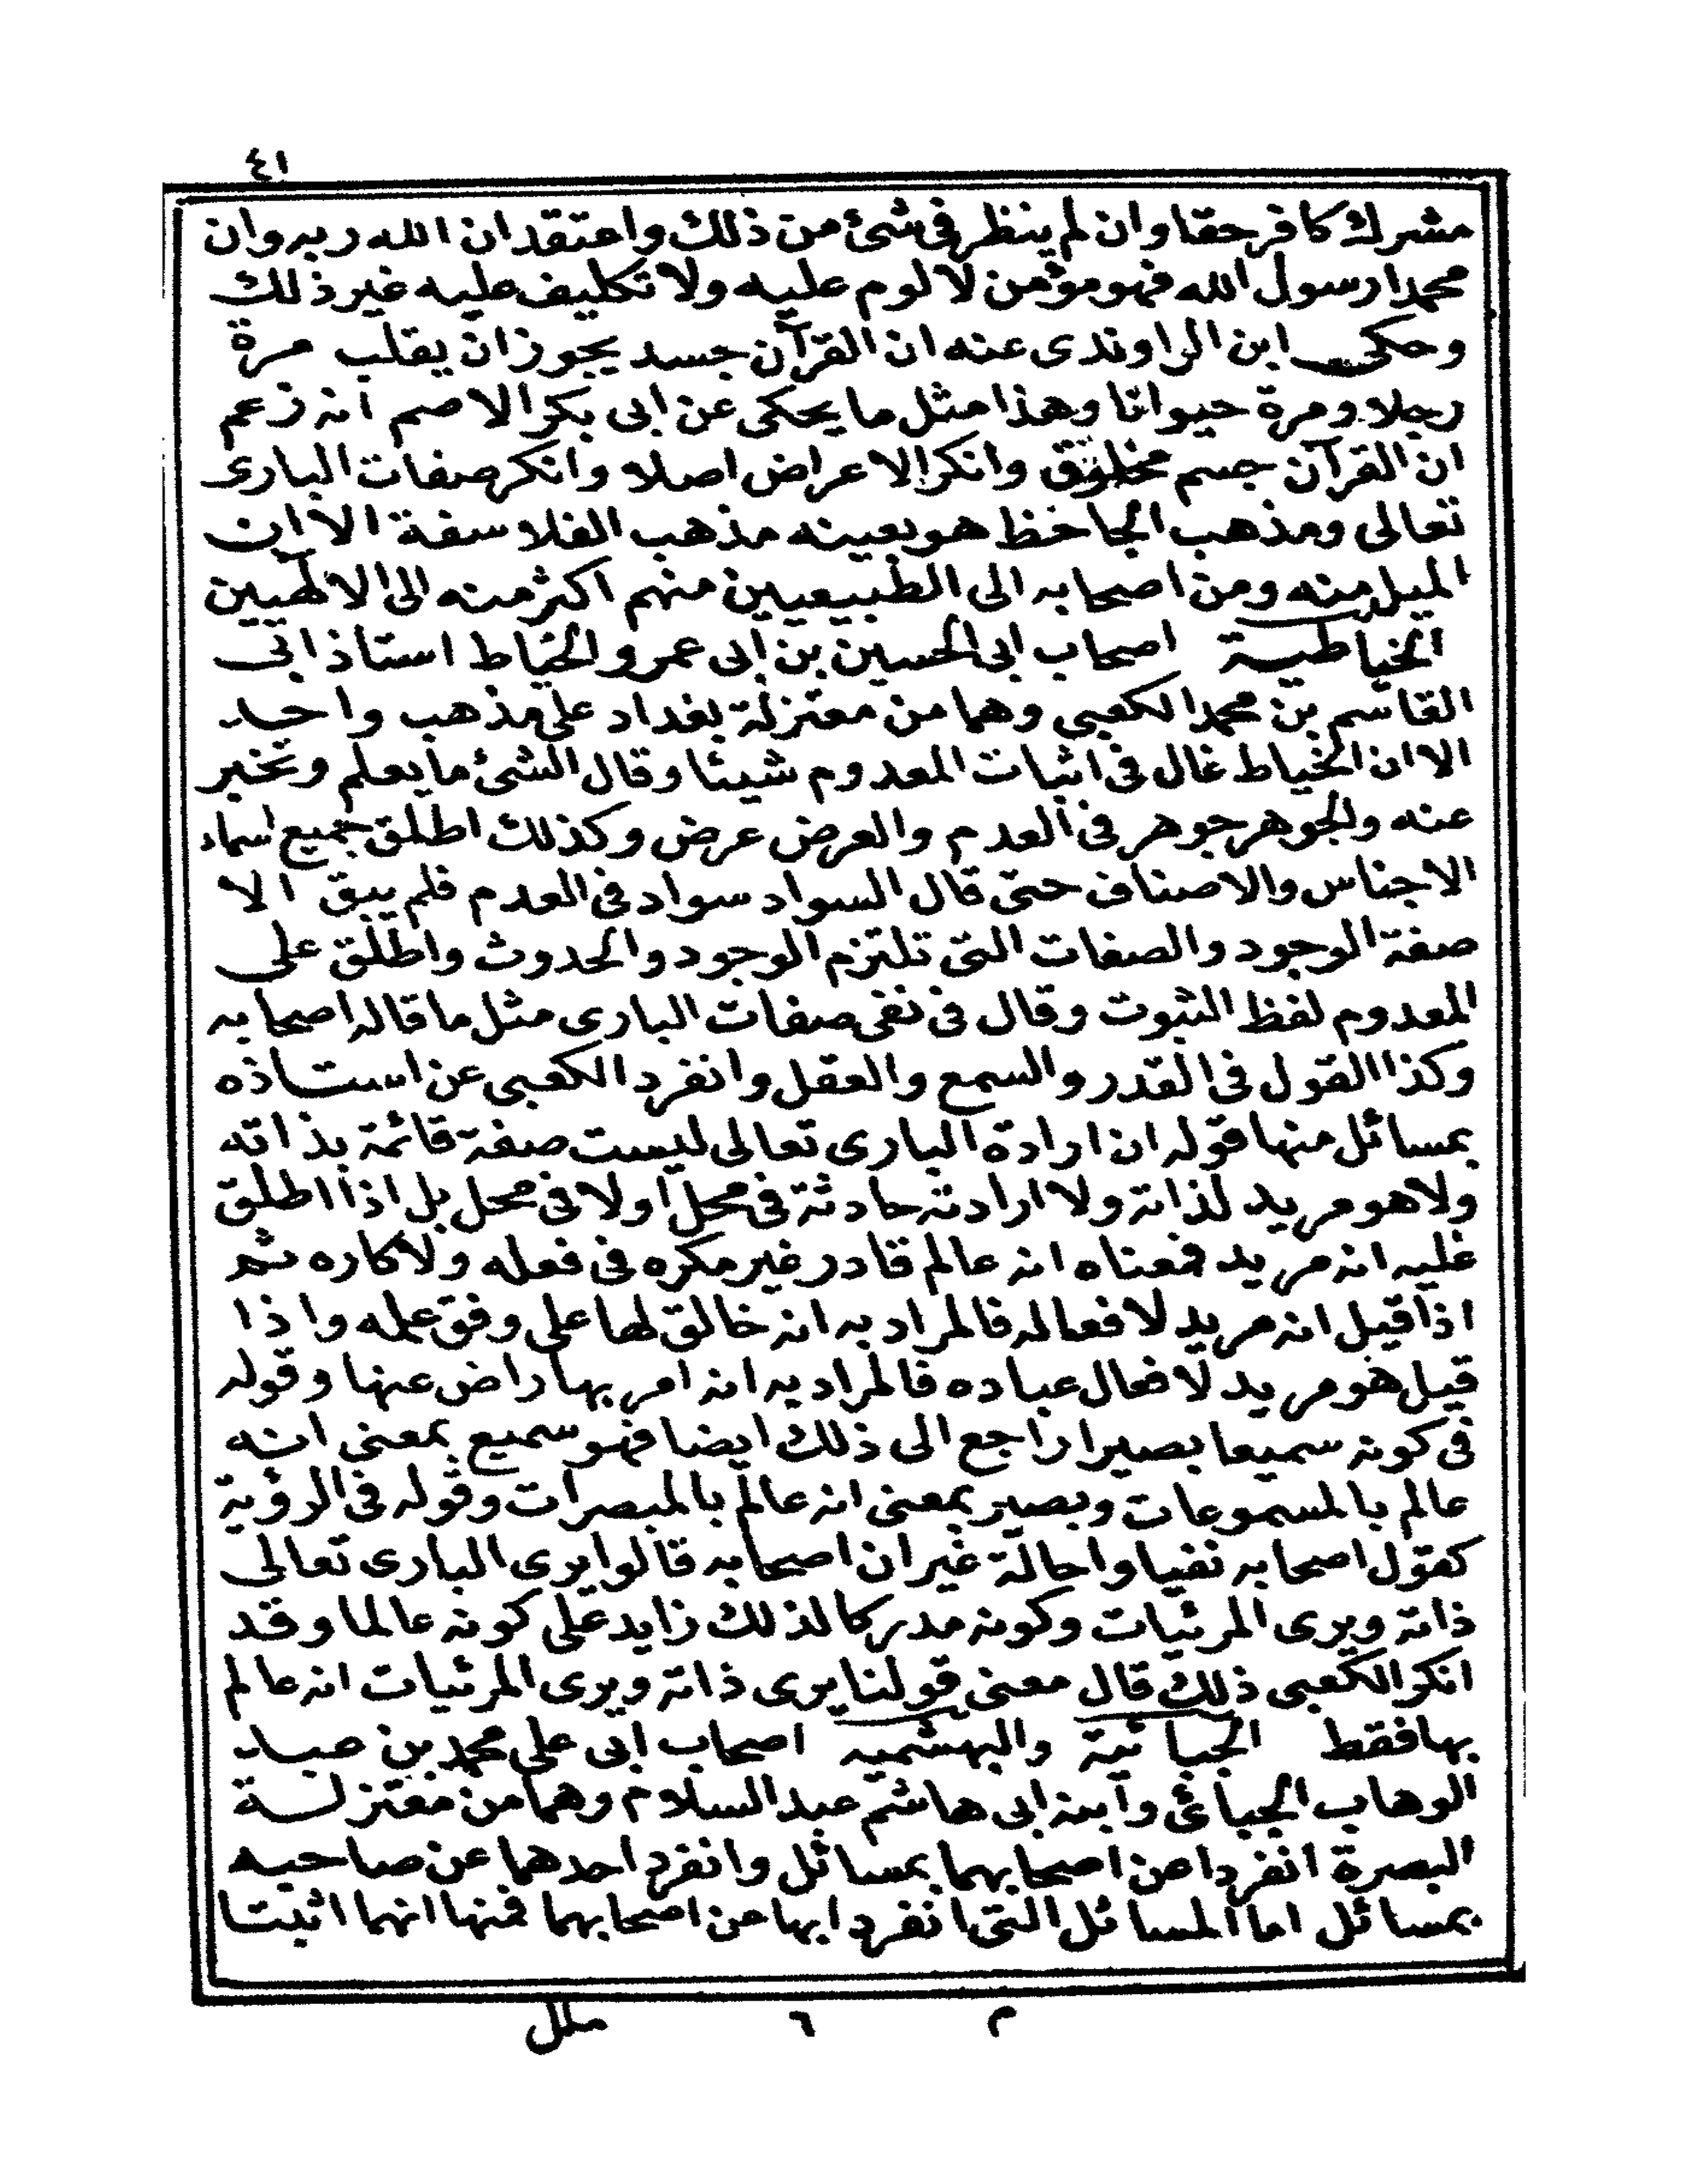 ٤١
مشرك كافر حقا وان لم ينظر فى شئ من ذلك واعتقد ان الله ربه وان
محمدا رسول الله فهو مؤمن لا لوم عليه ولا تكليف عليه غير ذلك
وحكى ابن الراوندى عنه ان القرآن جسد يجوز ان يقلب مرة
رجلا ومرة حيوانا وهذا مثل ما يحكى عن ابى بكر الاصم انه زعم
ان القرآن جسم مخلوق وانكر الاعراض اصلا وانكر صفات البارى
تعالى ومذهب الجاحظ هو بعينه مذهب الفلاسفة الا ان
الميل منه ومن اصحابه الى الطبيعيين منهم اكثر منه الى الالهيين
الخياطية اصحاب ابى الحسين بن ابى عمرو الخياط استاذ ابى
القاسم بن محمد الكعبى وهما من معتزلة بغداد على مذهب واحد
الا ان الخياط غال فى اثبات المعدوم شيئا وقال الشئ ما يعلم ويخبر
عنه والجوهر جوهر فى العدم والعرض عرض وكذلك اطلق جميع اسماء
الاجناس والاصناف حتى قال السواد سواد فى العدم فلم يبق الا
صفة الوجود والصفات التى تلتزم الوجود والحدوث واطلق على
المعدوم لفظ الثبوت وقال فى نفى صفات البارى مثل ما قاله اصحابه
وكذا القول فى القدر والسمع والعقل وانفرد الكعبى عن استاذه
بمسائل منها قوله ان ارادة البارى تعالى ليست صفة قائمة بذاته
ولا هو مريد لذاته ولا ارادته حادثة فى محل او لا فى محل بل اذا اطلق
عليه انه مريد فمعناه انه عالم قادر غير مكره فى فعله ولا كاره ثم
اذا قيل انه مريد لافعاله فالمراد به انه خالق لها على وفق علمه واذا
قيل هو مريد لافعال عباده فالمراد به انه امر بها راض عنها وقوله
فى كونه سميعا بصيرا راجع الى ذلك ايضا فهو سميع بمعنى انه
عالم بالمسموعات وبصير بمعنى انه عالم بالمبصرات وقوله فى الرؤية
كقول اصحابه نفيا واحالة غير ان اصحابه قالوا يرى البارى تعالى
ذاته ويرى المرئيات وكونه مدركا لذلك زايد على كونه عالما وقد
انكر الكعبى ذلك قال معنى قولنا يرى ذاته ويرى المرئيات انه عالم
بها فقط الجبائية والبهشميه اصحاب ابى على محمد بن عبد
الوهاب الجبائى وابنه ابى هاشم عبد السلام وهما من معتزلة
البصرة انفردا عن اصحابهما بمسائل وانفرد احدهما عن صاحبه
بمسائل اما المسائل التى انفردا بها عن اصحابهما فمنها انهما اثبتا
م ٦ ملل